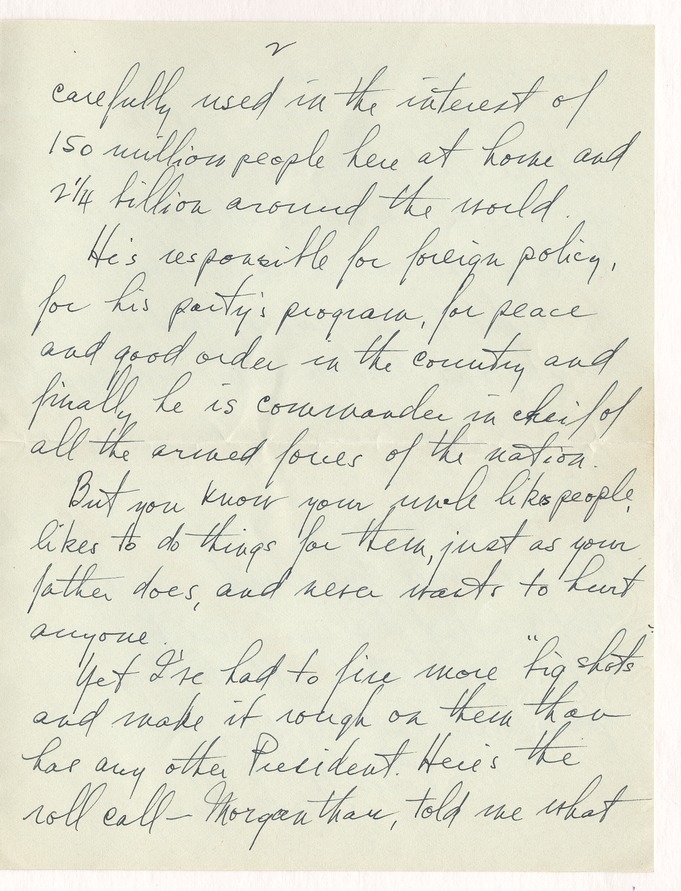 2
carefully used in the interest of
150 million people here at home and
2 1/4 billion around the world.
He's responsible for foreign policy,
for his party's program, for peace
and good order in the country and
finally he is commander in cheif of
all the armed forces of the nation.
But you know your uncle likes people,
likes to do things for them, just as your
father does, and never wants to hurt
anyone.
Yet I've had to fire more "big shots"
and make it rough on them than
has any other President. Here's the
roll call — Morganthau, told me what